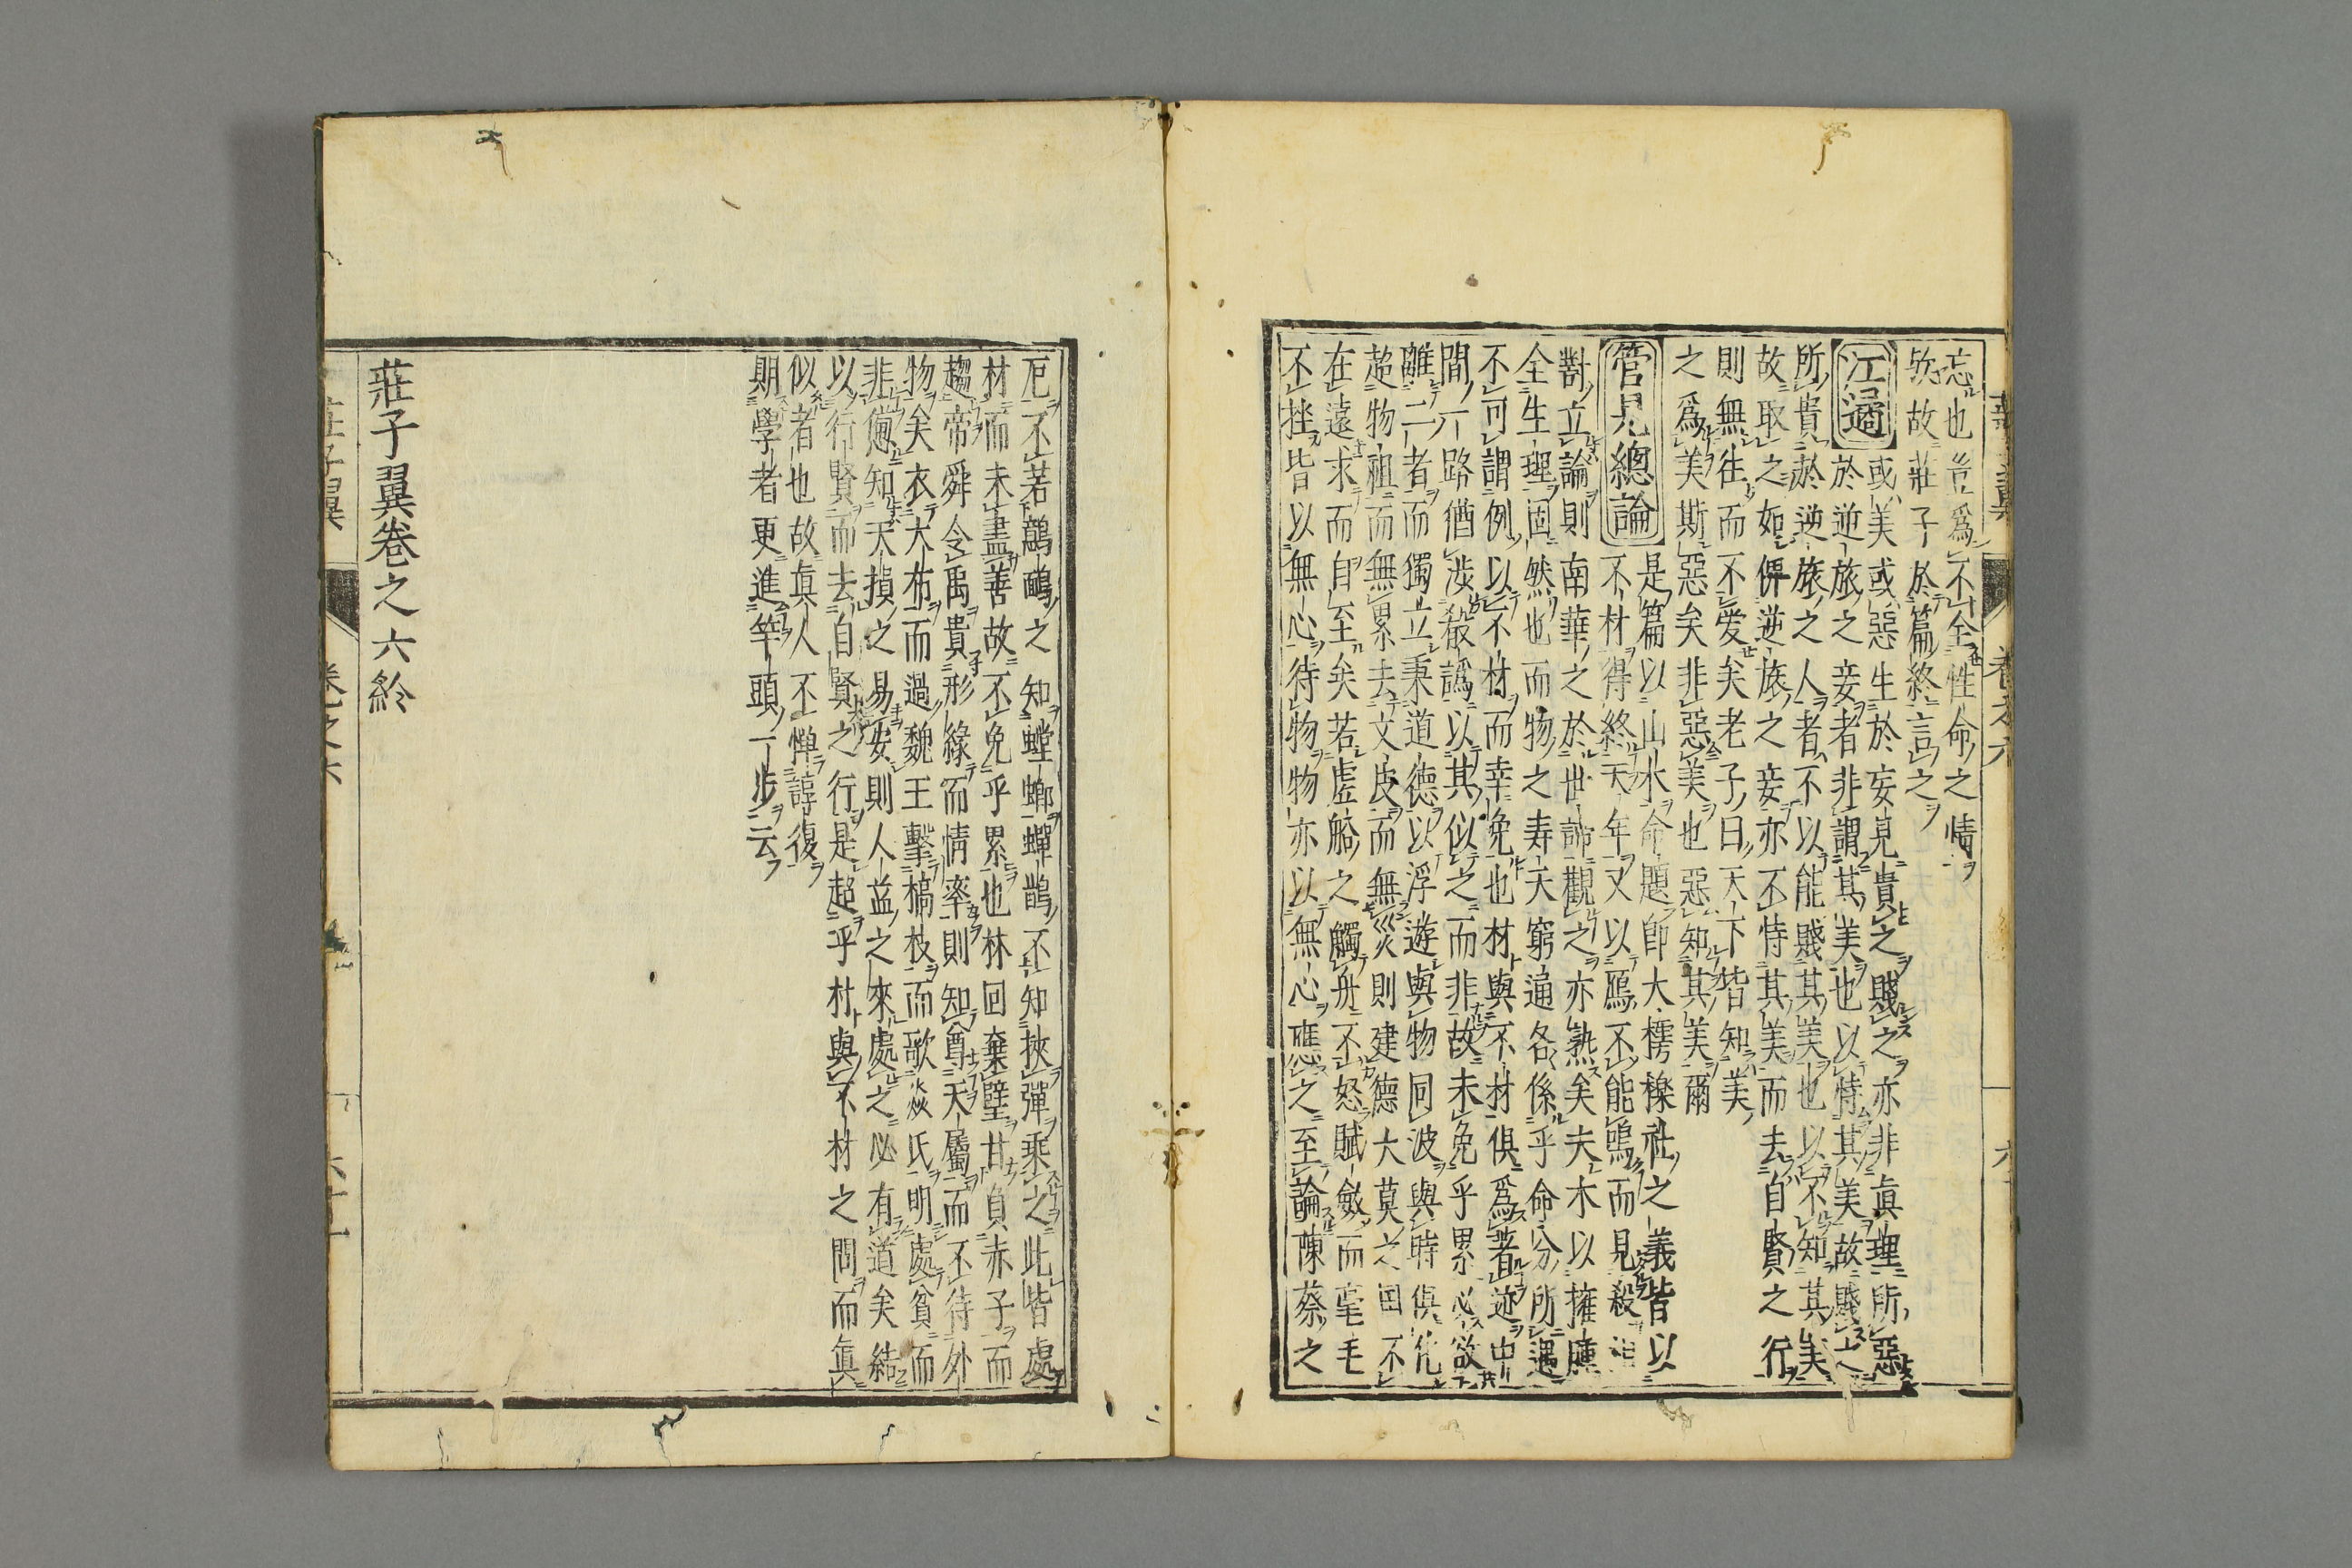 忘也豈爲不全性命之情
欤故莊子於篇終言之
江遹
或美或惡生於妄見貴之賤之亦非眞理所惡
於逆旅之妾者非謂其美也以恃其美故賤
所貴於逆旅之人者不以能賤其美也以不知其美
故取之如俾逆旅之妾亦不恃其美而去自賢之行
則無往而不愛矣老子曰天下皆知美
之爲美斯惡矣非惡美也惡知其美爾
管見總論
是篇以山水命題即大樗櫟社之義皆以
不材得終天年又以鴈不能鳴而見殺
對立論則南華之於世諦觀之亦熟矣夫木以擁腫
全生理固然也而物之寿夭窮通各係乎命分所遇
不可謂例以不材而幸免也材與不材俱爲著迹中
間一路猶涉殽譌以其似之而非故未免乎累必欲
離二者而獨立秉道德以浮遊與物同波與時俱化
超物祖而無累去文皮而無災則建德大莫之国不
在遠求而自至矣若虛舩之觸舟不怒賦斂而毫毛
不挫皆以無心待物物亦以無心應之至論陳蔡之
厄不若鷾鴯之知螳螂蟬鵲不知挾彈乘之此皆處
材而未盡善故不免乎累也林回棄璧甘負赤子而
趨帝舜令禹貴形緣而情率則知首天屬而不待外
物矣衣大布而過魏王擊槁枝而歌焱氏明處貧而
非憊知天損之易安則人益之來處之必有道矣結
以行賢而去自賢之行是超乎材與不材之間而眞
似者也故眞人不憚諄復
期學者更進竿頭一步云
莊子翼卷之六終